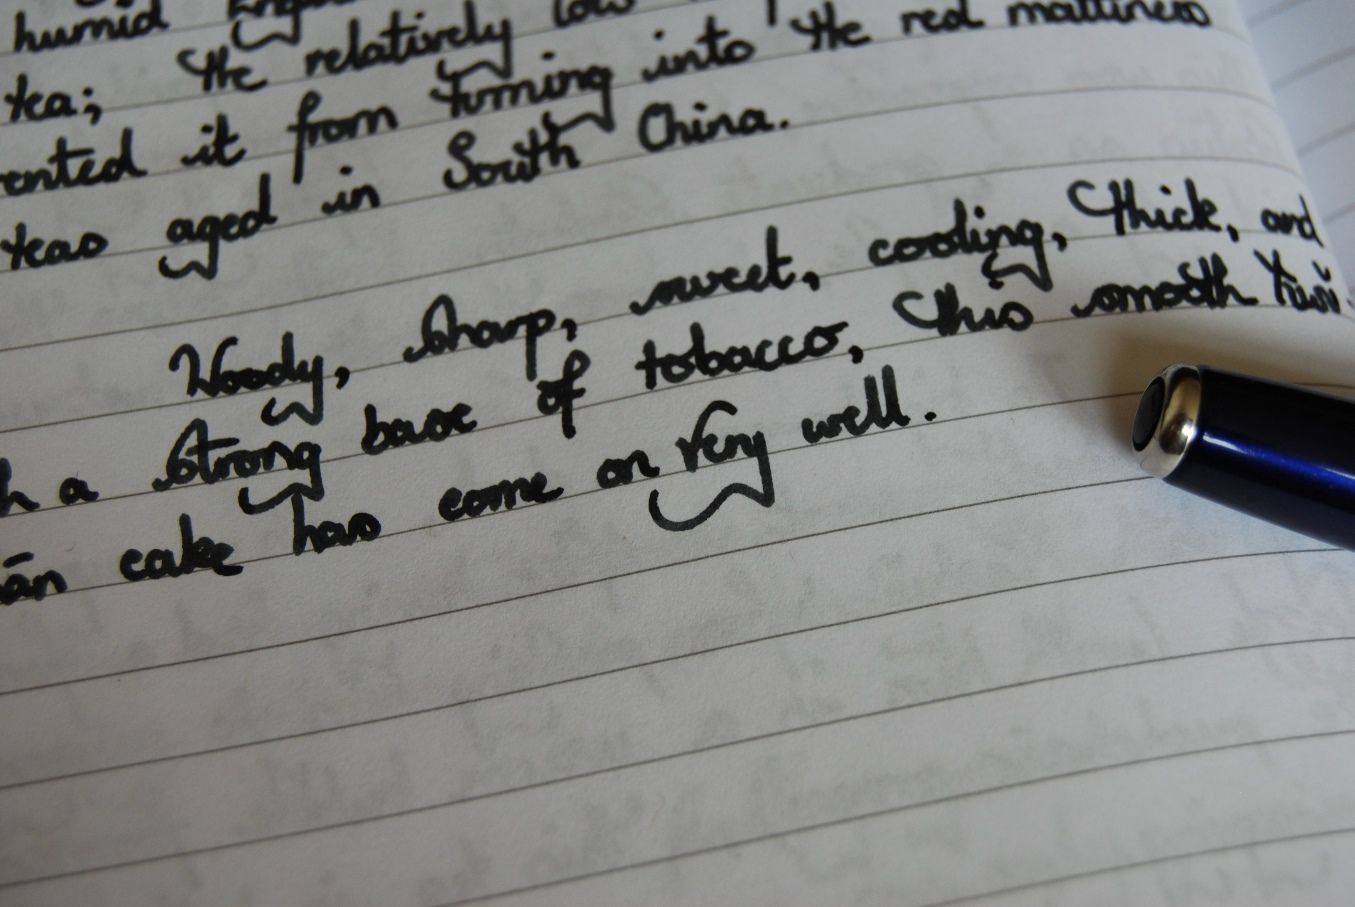 humid
tea; the relatively low
ented it from turning into the red maltiness
teas aged in South China.
Woody, sharp, sweet, cooling, thick, and
h a strong base of tobacco, this smooth
ān cake has come on very well.